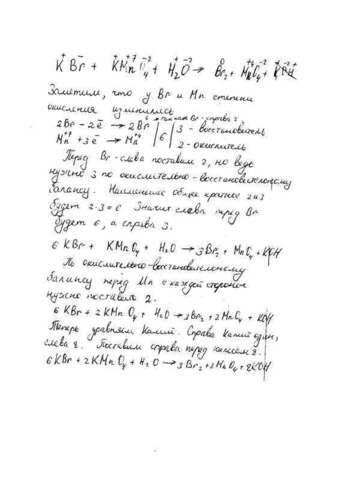 K⁺Br⁻ + K⁺Mn⁺⁷O₄⁻² + H₂⁺O⁻² → Br₂⁰ + MnO₄⁻² + KOH
Заметим, что у Br и Mn степени
окисления изменились
2Br - 2ē → 2Br | 6 | 3 - восстановитель
Mn⁺⁷ + 3ē → Mn⁺⁴ 2 - окислитель
Перед Br слева поставим 2, но ведь
нужно 3 по окислительно-восстановительному
балансу. Наименьшее общее кратное 2 и 3
будет 2·3=6 Значит слева перед Br
будет 6, а справа 3.
6 KBr + KMnO₄ + H₂O → 3Br₂ + MnO₄ + KOH
По окислительно-восстановительному
балансу перед Mn с каждой стороны
нужно поставить 2.
6 KBr + 2KMnO₄ + H₂O → 3Br₂ + 2MnO₄ + KOH
Теперь уравняем Калий. Справа Калий один,
слева 8. Поставим справа перед калием 8.
6 KBr + 2KMnO₄ + H₂O → 3Br₂ + 2MnO₄ + 8KOH